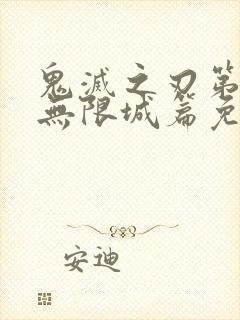 鬼滅之刃第
無限城篇免
安迪